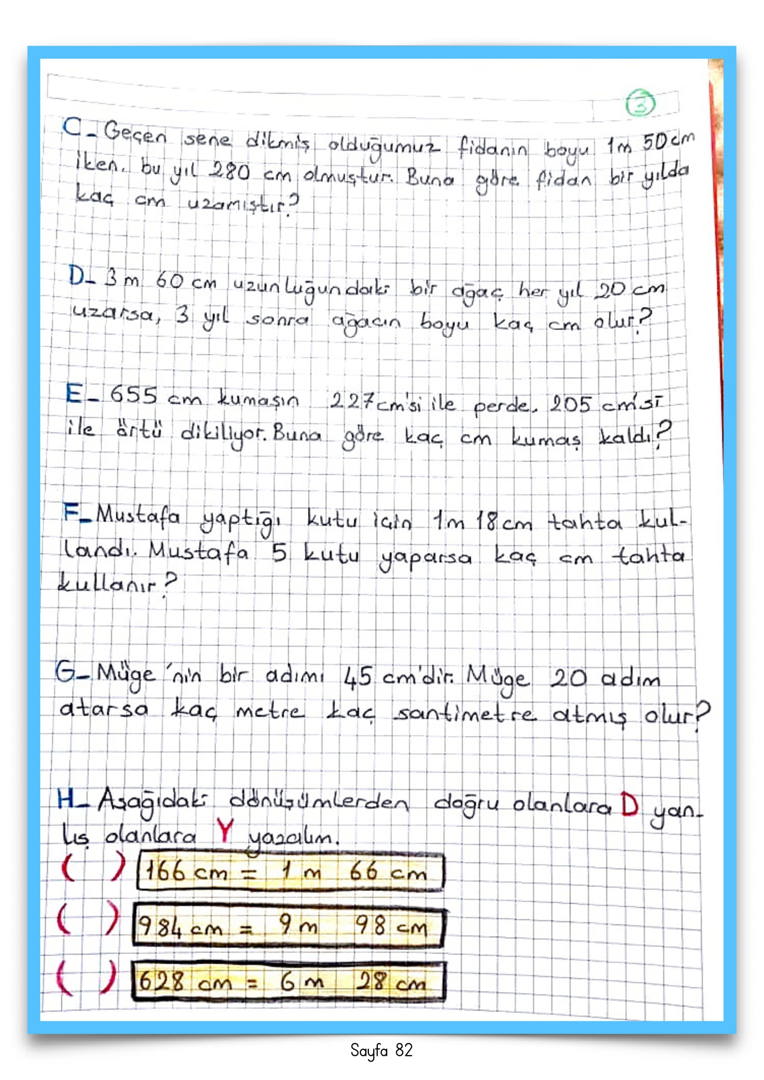 3
C- Geçen sene dikmiş olduğumuz fidanın boyu 1m 50cm
iken, bu yıl 280 cm olmuştur. Buna göre fidan bir yılda
kaç cm uzamıştır?
D- 3 m 60 cm uzunluğundaki bir ağaç her yıl 20 cm
uzarsa, 3 yıl sonra ağacın boyu kaç cm olur?
E- 655 cm kumaşın 227cm'si ile perde, 205 cm'si
ile örtü dikiliyor. Buna göre kaç cm kumaş kaldı?
F- Mustafa yaptığı kutu için 1m 18cm tahta kul-
landı. Mustafa 5 kutu yaparsa kaç cm tahta
kullanır?
G- Müge'nin bir adımı 45 cm'dir. Müge 20 adım
atarsa kaç metre kaç santimetre atmış olur?
H- Aşağıdaki dönüşümlerden doğru olanlara D yan-
lış olanlara Y yazalım.
( ) 166 cm = 1 m 66 cm
( ) 984 cm = 9 m 98 cm
( ) 628 cm = 6 m 28 cm
Sayfa 82